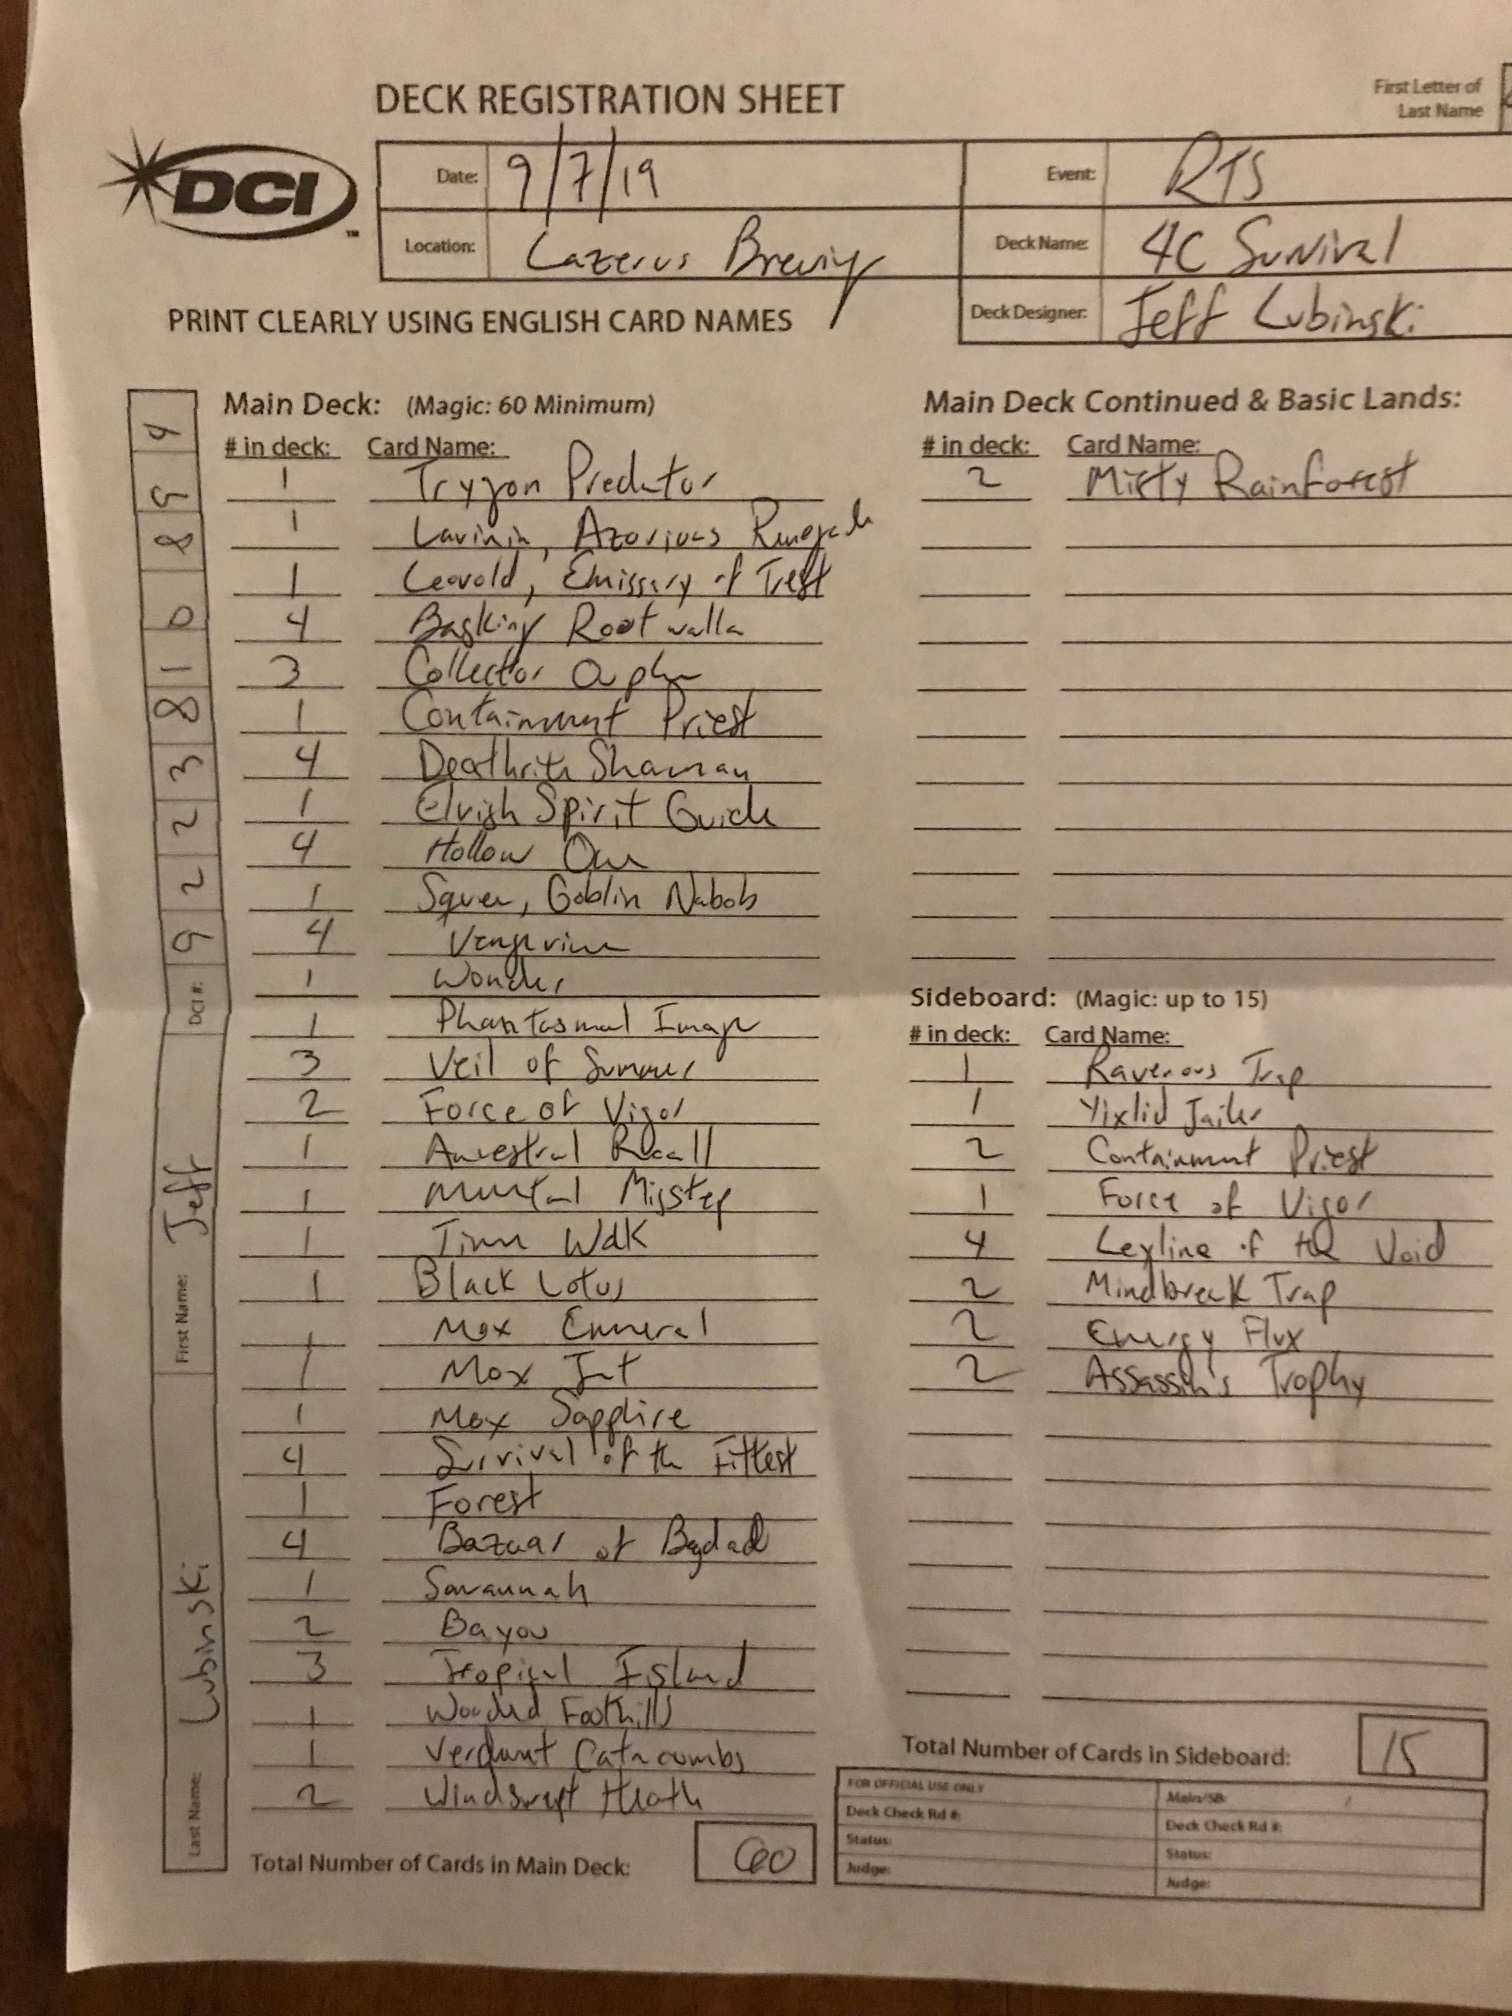 DECK REGISTRATION SHEET
First Letter of
Last Name
DCI
TM
Date: 9/7/19
Event: RTS
Location: Lazerus Brewing
Deck Name: 4C Survival
Deck Designer: Jeff Lubinski
PRINT CLEARLY USING ENGLISH CARD NAMES
Main Deck: (Magic: 60 Minimum)
# in deck: Card Name:
1 Trygon Predator
1 Lavinia, Azorious Renegade
1 Leovold, Emissary of Trest
4 Basking Rootwalla
3 Collector Ouphe
1 Containment Priest
4 Deathrite Shaman
1 Elvish Spirit Guide
4 Hollow One
1 Squee, Goblin Nabob
4 Vengevine
1 Wonder
1 Phantasmal Image
3 Veil of Summer
2 Force of Vigor
1 Ancestral Recall
1 Mental Misstep
1 Time Walk
1 Black Lotus
1 Mox Emmeral
1 Mox Jet
1 Mox Sapphire
4 Survival of the Fittest
1 Forest
4 Bazaar of Bagdad
1 Savannah
2 Bayou
3 Tropical Island
1 Wooded Foothills
1 Verdant Catacombs
2 Windswept Heath
Total Number of Cards in Main Deck: 60
Main Deck Continued & Basic Lands:
# in deck: Card Name:
2 Misty Rainforest
Sideboard: (Magic: up to 15)
# in deck: Card Name:
1 Ravenous Trap
1 Yixlid Jailer
2 Containment Priest
1 Force of Vigor
4 Leyline of the Void
2 Mindbreak Trap
2 Energy Flux
2 Assassin's Trophy
Total Number of Cards in Sideboard: 15
FOR OFFICIAL USE ONLY
Main/SB:
Deck Check Rd #:
Deck Check Rd #:
Status:
Status:
Judge:
Judge:
Last Name: Lubinski
First Name: Jeff
DCI #: 9223810894